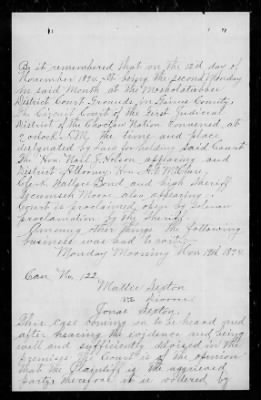 Be it remembered that on the 12th day of
November 1894. It being the second Monday
in said Month at the Mosholatubbee
District Court Grounds, in Gaines County,
The Circuit Court of the First Judicial
District of the Choctaw Nation convened at
o'clock M, the time and place
designated by law for holding said Court
The Hon. Noel J. Holson appearing and
District Attorney, Hon. A.
Clerk, Bond and high Sheriff
Tecumseh Moore also appearing
Court is proclaimed open by solemn
proclamation by the Sheriff.
Among other things the following
business was had to wit:
Monday Morning Nov. 1894
Case No. 122.
Mattee Sexton
vs Divorce
Jonas Sexton.
This case coming on to be heard and
after hearing the evidence and being
well and sufficiently advised in the
premises the Court is of the opinion
that the Plaintiff is the aggrieved
party, therefore it is ordered by